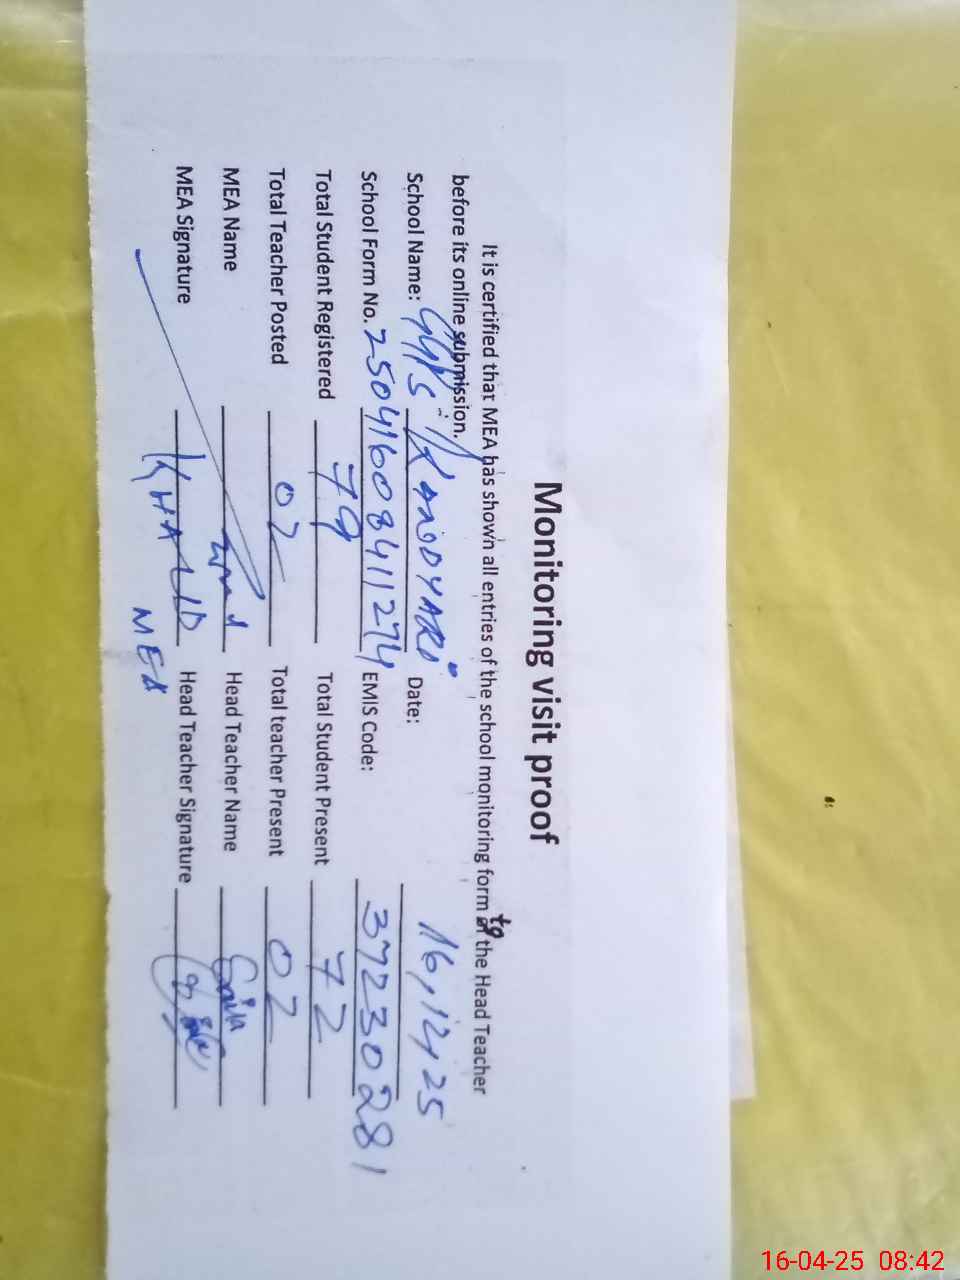 Monitoring visit proof
It is certified that MEA has shown all entries of the school monitoring form to the Head Teacher
before its online submission.
School Name: GGPS Date: 16,4,25
School Form No. 250416084411274 EMIS Code: 37230281
Total Student Registered 79 Total Student Present 72
Total Teacher Posted 02 Total teacher Present 02
MEA Name Head Teacher Name
MEA Signature KHALID Head Teacher Signature
MEA
16-04-25 08:42